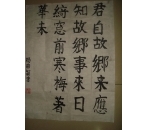 君自故鄉來應
知故鄉事來日
綺窓前寒梅著
花未